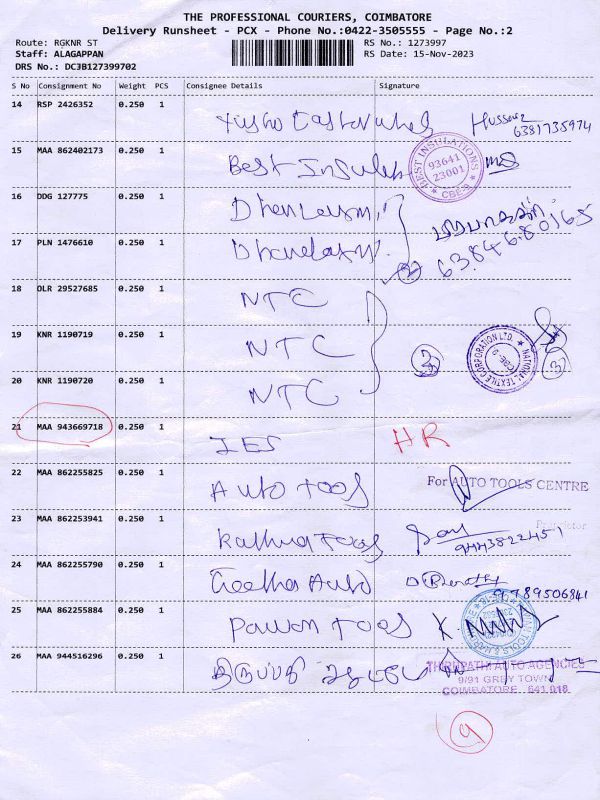 THE PROFESSIONAL COURIERS, COIMBATORE
Delivery Runsheet - PCX - Phone No.:0422-3505555 - Page No.:2
Route: RGKNR ST RS No.: 1273997
Staff: ALAGAPPAN RS Date: 15-Nov-2023
DRS No.: DCJB127399702
S No Consignment No Weight PCS Consignee Details Signature
14 RSP 2426352 0.250 1
6381735974
15 MAA 862402173 0.250 1 Best Insulat
BEST INSULATIONS
93641
23001
CBE-9
16 DDG 127775 0.250 1
17 PLN 1476610 0.250 1
6384680165
18 OLR 29527685 0.250 1 NTC
19 KNR 1190719 0.250 1 NTC
NATIONAL TEXTILE CORPORATION LTD.
CBE-9
20 KNR 1190720 0.250 1 NTC
21 MAA 943669718 0.250 1 IES HR
22 MAA 862255825 0.250 1 Auto Tools
For AUTO TOOLS CENTRE
Proprietor
23 MAA 862253941 0.250 1
9443822451
24 MAA 862255790 0.250 1 Geetha Auto
9789506841
25 MAA 862255884 0.250 1 Pawan Tools
26 MAA 944516296 0.250 1 திருப்பதி
THIRUPATHI AUTO AGENCIES
9/91 GREY TOWN
COIMBATORE 641 018
9